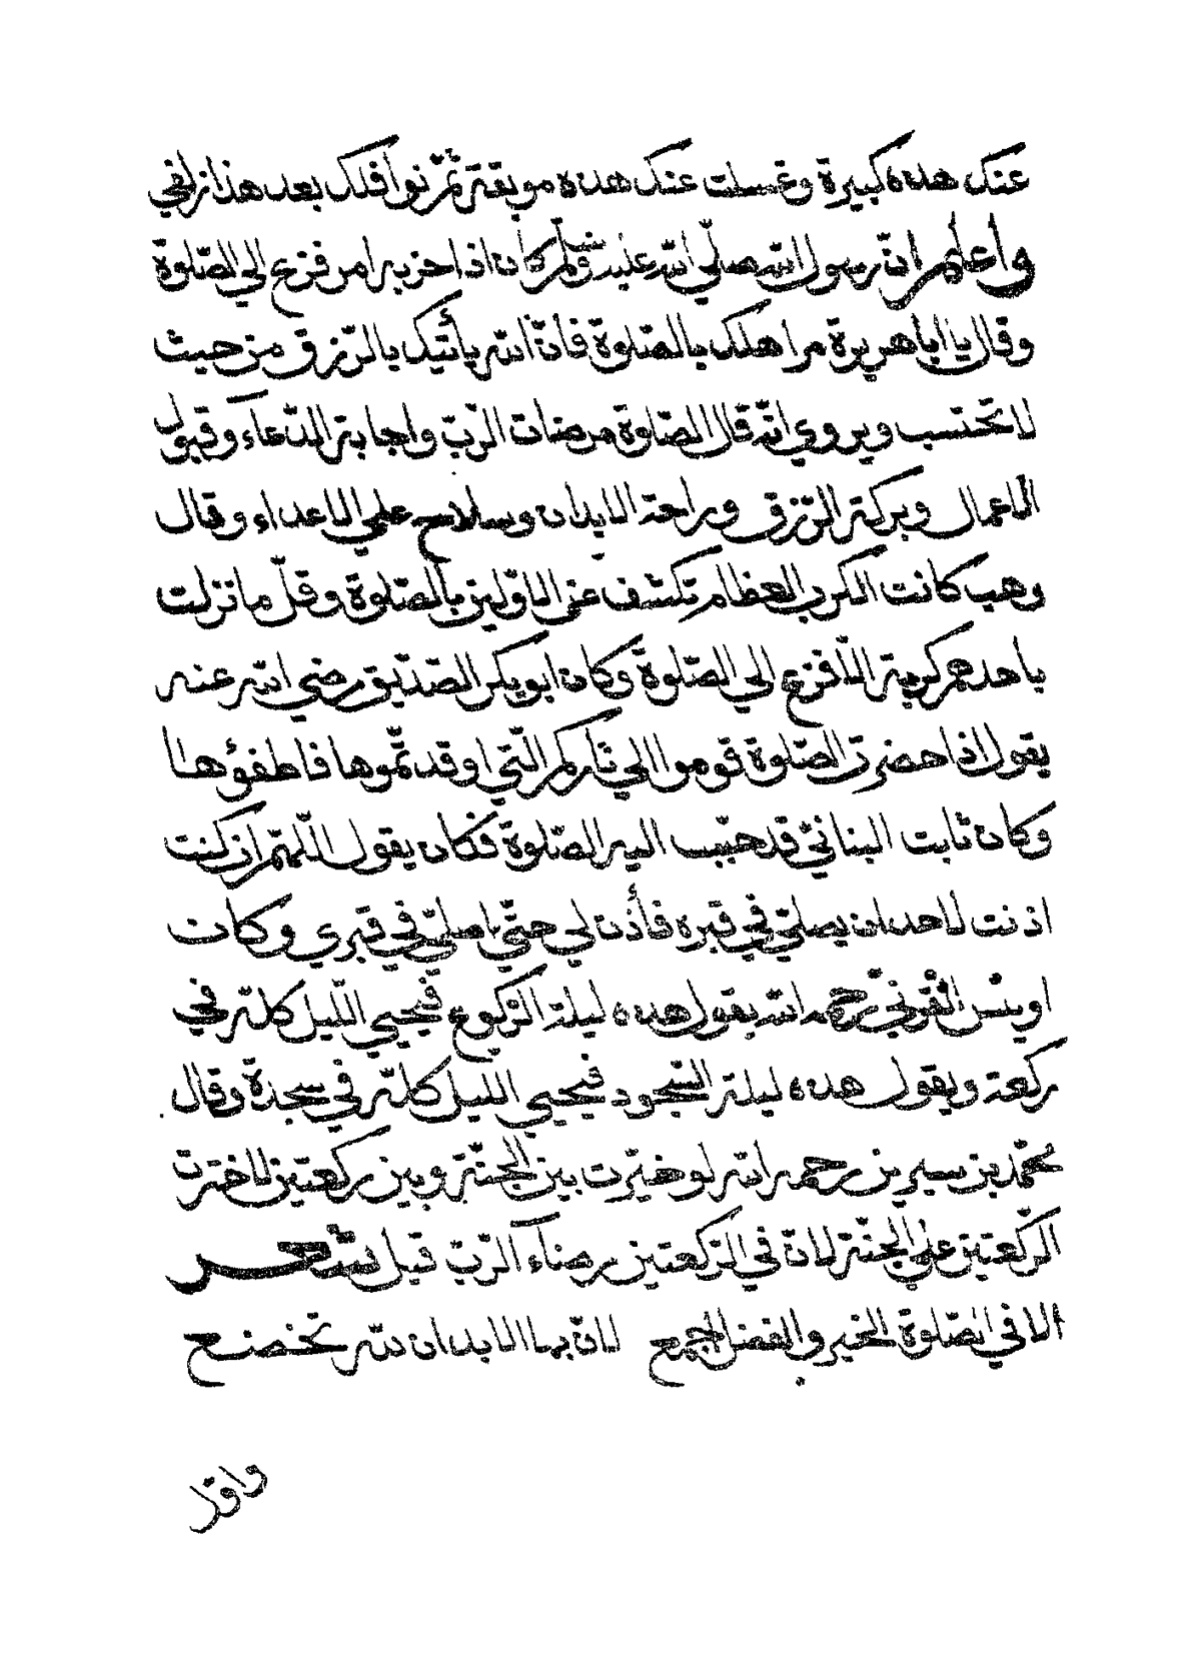 عنك هذه كبيرة وغسلت عنك هذه موبقة ثمّ نوافلك بعد هذا
واعلم انّ رسول الله صلّي الله عليه وسلم كان اذا حزبه امر فزع الي الصّلوة
وقال يا ابا هريرة مر اهلك بالصّلوة فانّ الله يأتيك بالرّزق من حيث
لا تحتسب ويروي انّه قال الصّلوة مرضات الرّبّ واجابة الدّعآء وقبول
الاعمال وبركة الرّزق وراحة الابدان وسلاح علي الاعداء وقال
وهب كانت الكرب العظام تكشف عن الاوّلين بالصّلوة وقلّ ما نزلت
باحدهم كربة الّا فزع الي الصّلوة وكان ابوبكر الصّدّيق رضي الله عنه
يقول اذا حضرت الصّلوة قوموا الي ناركم الّتي اوقدتّموها فاطفؤها
وكان ثابت البنانيّ قد حبّب اليه الصّلوة فكان يقول اللّهمّ ان كنت
اذنت لاحد ان يصلّي في قبره فأذن لي حتّي اصلّي في قبري وكان
اويس القرنيّ رحمه الله يقول هذه ليلة الرّكوع فيحيي اللّيل كلّه في
ركعة ويقول هذه ليلة السّجود فيحيي الليل كلّه في سجدة وقال
محمّد بن سيرين رحمه الله لو خيّرت بين الجنّة وبين ركعتين لاخترت
الرّكعتين علي الجنّة لانّ في الرّكعتين رضآء الرّبّ قيل شعر
الا في الصّلوة الخير والفضل اجمع لانّ بها الابدان لله تخضع
واوّل